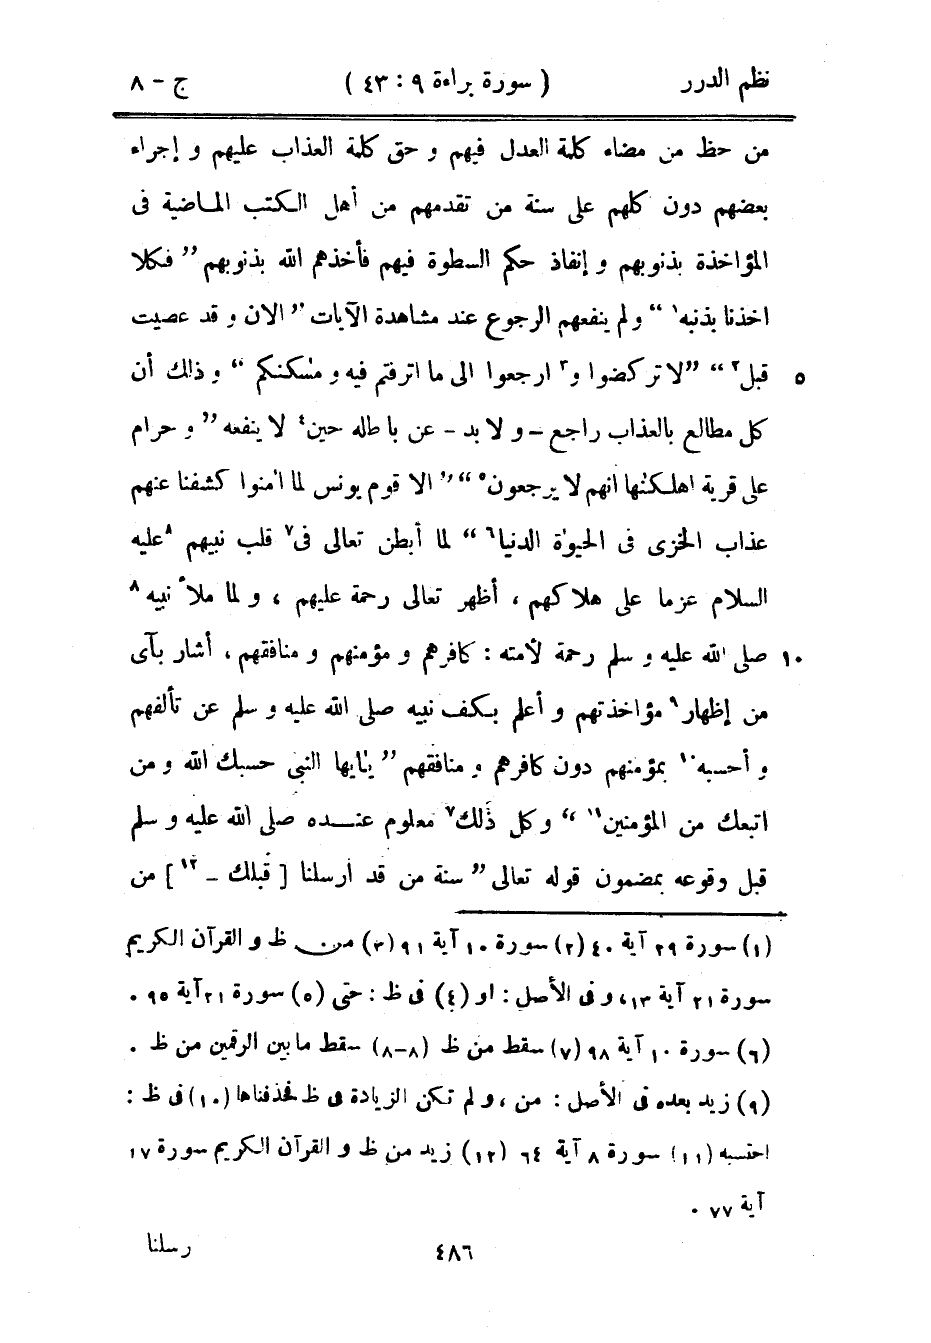 نظم الدرر ( سورة براءة ٩ : ٤٣ ) ج – ٨
من حظ من مضاء كلمة العدل فيهم و حق كلمة العذاب عليهم و إجراء
بعضهم دون كلهم على سنة من تقدمهم من أهل الكتب الماضية فى
المؤاخذة بذنوبهم و إنفاذ حكم السطوة فيهم فأخذهم الله بذنوبهم ” فكلا
اخذنا بذنبه١ “ و لم ينفعهم الرجوع عند مشاهدة الآيات ” الان و قد عصيت
٥ قبل٢ “ ” لا تركضوا و٣ ارجعوا الى ما اترفتم فيه و مسٰكنكم “ و ذلك أن
كل مطالع بالعذاب راجع – و لا بد – عن باطله حين٤ لا ينفعه ” و حرام
على قرية اهلكنٰها انهم لا يرجعون٥ “ ” الا قوم يونس لما اٰمنوا كشفنا عنهم
عذاب الخزى فى الحيوٰة الدنيا٦ “ لما أبطن تعالى فى٧ قلب نبيهم ٨عليه
السلام عزما على هلاكهم ، أظهر تعالى رحمة عليهم ، و لما ملأ نبيه٨
١٠ صلى الله عليه و سلم رحمة لأمته : كافرهم و مؤمنهم و منافقهم ، أشار بآى
من إظهار٩ مؤاخذتهم و أعلم بكف نبيه صلى الله عليه و سلم عن تألفهم
و أحسبه١٠ بمؤمنهم دون كافرهم و منافقهم ” يٰايها النبى حسبك الله و من
اتبعك من المؤمنين١١ “ و كل ذلك٧ معلوم عنده صلى الله عليه و سلم
قبل وقوعه بمضمون قوله تعالى ” سنة من قد ارسلنا [ قبلك – ١٢ ] من
(١) سورة ٢٩ آية ٤٠ (٢) سورة ١٠ آية ٩١ (٣) من ظ و القرآن الكريم
سورة ٢١ آية ١٣، و فى الأصل : او (٤) فى ظ : حتى (٥) سورة ٢١ آية ٩٥ .
(٦) سورة ١٠ آية ٩٨ (٧) سقط من ظ (٨–٨) سقط ما بين الرقمين من ظ .
(٩) زيد بعده فى الأصل : من ، و لم تكن الزيادة فى ظ فحذفناها (١٠) فى ظ :
احتسبه (١١) سورة ٨ آية ٦٤ (١٢) زيد من ظ و القرآن الكريم سورة ١٧
آية ٧٧ .
٤٨٦ رسلنا